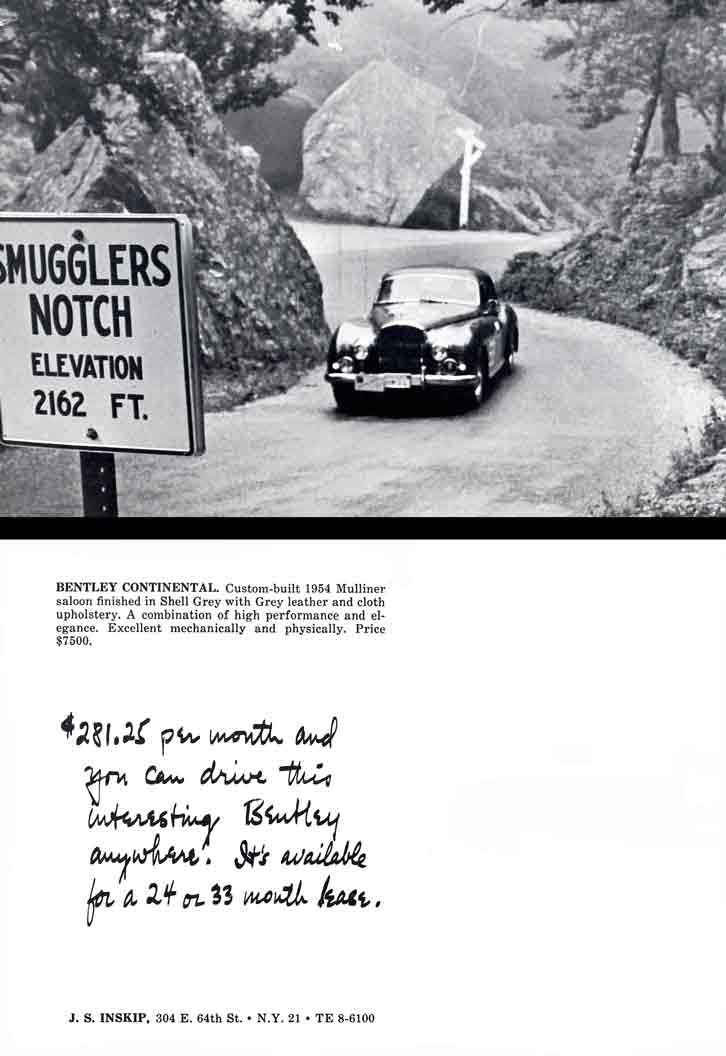 SMUGGLERS
NOTCH
ELEVATION
2162 FT.
BENTLEY CONTINENTAL. Custom-built 1954 Mulliner
saloon finished in Shell Grey with Grey leather and cloth
upholstery. A combination of high performance and el-
egance. Excellent mechanically and physically. Price
$7500.
$281.25 per month and
you can drive this
interesting Bentley
anywhere! It's available
for a 24 or 33 month lease.
J. S. INSKIP, 304 E. 64th St. • N.Y. 21 • TE 8-6100